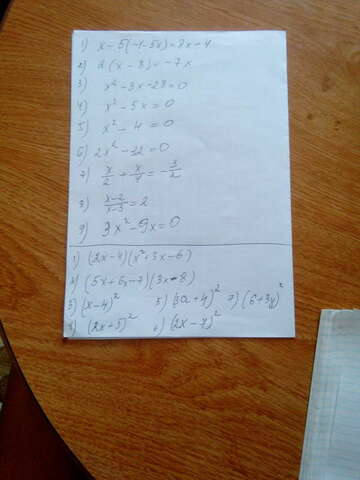 1) x-5(-1-5x)=8x+4
2) 2(x-8)=-7x
3) x²-3x-28=0
4) x²-5x=0
5) x²-4=0
6) 2x²-32=0
7) x/2+x/4=-3/2
8) (x-2)/(x-3)=2
9) 3x²-9x=0
1) (2x-4)(x²+3x-6)
2) (5x+6y-7)(3x-8)
3) (x-4)² 5) (3a+4)² 7) (6+3y)²
4) (2x+5)² 6) (2x-7)²